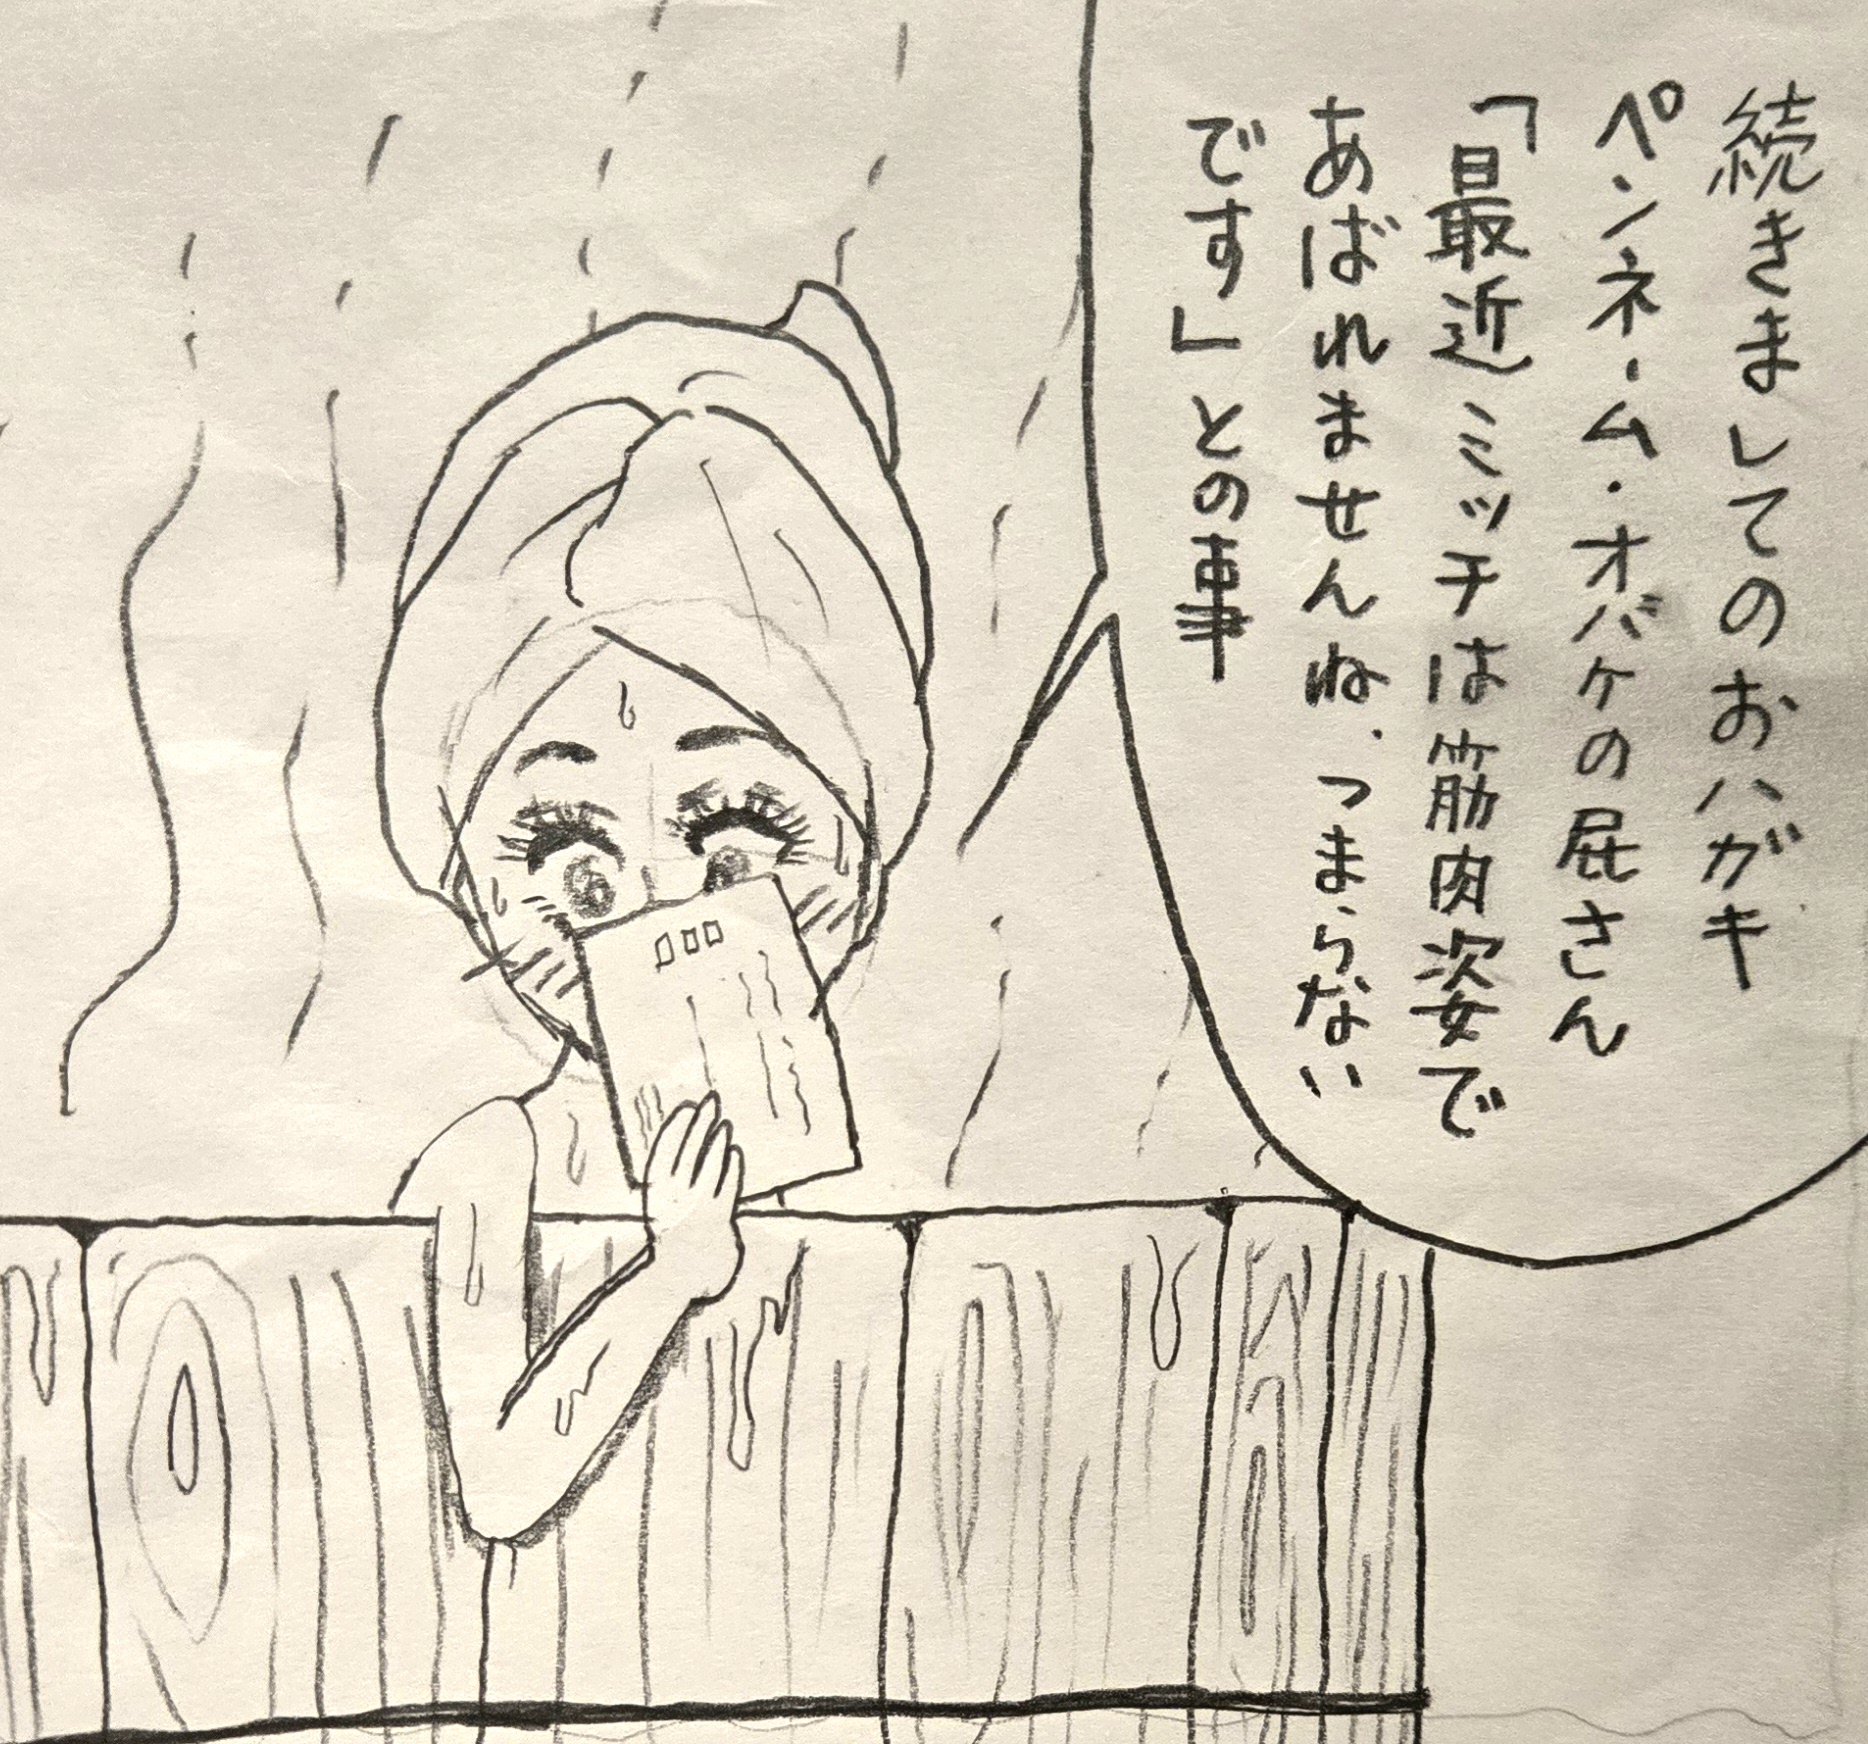 続きましてのおハガキ
ペンネーム・オバケの屁さん
「最近ミッチは筋肉姿で
あばれませんね、つまらない
です」との事